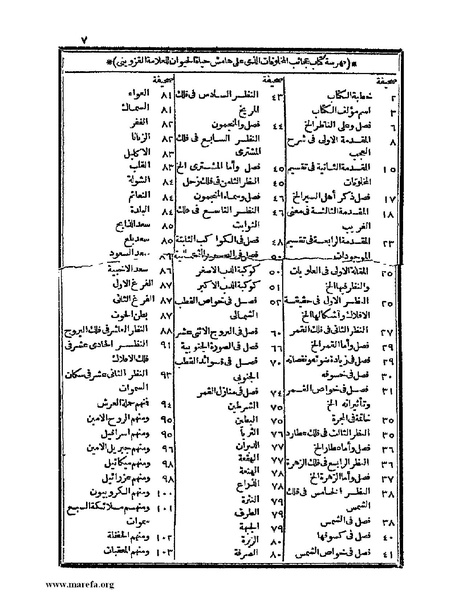 ٧
*(فهرسة كتاب عجائب المخلوقات الذى على هامش حياة الحيوان للعلامة القزوينى)*
صحيفة
٢ خطبة الكتاب
٣ اسم مؤلف الكتاب
٦ فصل وعلى الناظر الخ
٨ المقدمة الاولى فى شرح
العجب
١٥ المقدمة الثانية فى تقسيم
المخلوقات
١٧ فصل ذكر أهل السير الخ
١٨ المقدمة الثالثة فى معنى
الغريب
٢٣ المقدمة الرابعة فى تقسيم
الموجودات
٢٥ المقالة الاولى فى العلويات
والنظر فيها الخ
٢٥ النظر الاول فى حقيقة
الافلاك وأشكالها الخ
٢٧ النظر الثانى فى فلك القمر
٢٩ فصل وأما القمر الخ
٢٩ فصل فى زيادة ضوئه ونقصانه
٣٠ فصل فى خسوفه
٣١ فصل فى خواص القمر
وتأثيراته الخ
٣٥ خاتمة فى المجرة
٣٥ النظر الثالث فى فلك عطارد
٣٦ فصل وأما عطارد الخ
٣٦ النظر الرابع فى فلك الزهرة
٣٧ فصل وأما الزهرة الخ
٣٨ النظر الخامس فى فلك
الشمس
٣٨ فصل فى الشمس
٤٠ فصل فى كسوفها
٤١ فصل فى خواص الشمس
صحيفة
٤٣ النظر السادس فى فلك
المريخ
٤٤ فصل والمنجمون
النظر السابع فى فلك
المشترى
٤٥ فصل وأما المشترى الخ
٤٥ النظر الثامن فى فلك زحل
٤٦ فصل وسماه المنجمون
٤٦ النظر التاسع فى فلك
الثوابت
٤٨ فصل فى الكواكب الثابتة
٥٠ فصل فى الصور الشمالية
٥٠ كوكبة الدب الاصغر
٥١ كوكبة الدب الاكبر
٥٢ فصل فى خواص القطب
الشمالى
٦٠ فصل فى البروج الاثنى عشر
٦٦ فصل فى الصورة الجنوبية
٧٠ فصل فى فوائد القطب
الجنوبى
٧٤ فصل فى منازل القمر
٧٥ الشرطين
٧٥ البطين
٧٦ الثريا
٧٦ الدبران
٧٧ الهقعة
٧٧ الهنعة
٧٨ الذراع
٧٩ النثرة
٧٩ الطرف
٧٩ الجبهة
٨٠ الزبرة
٨٠ الصرفة
صحيفة
٨١ العواء
٨١ السماك
٨٢ الغفر
٨٢ الزبانا
٨٣ الاكليل
٨٣ القلب
٨٤ الشولة
٨٤ النعائم
٨٤ البلدة
٨٥ سعد الذابح
٨٥ سعد بلع
سعد السعود
٨٦ سعد الاخبية
٨٦ الفرغ الاول
٨٧ الفرغ الثانى
بطن الحوت
النظر العاشر فى فلك البروج
٩١ النظر الحادى عشر فى
فلك الافلاك
٩٣ النظر الثانى عشر فى سكان
السموات
٩٤ فنهم حملة العرش
٩٥ ومنهم الروح الامين
٩٥ ومنهم اسرافيل
٩٦ ومنهم جبريل الامين
٩٨ ومنهم ميكائيل
٩٨ ومنهم عزرائيل
١٠٠ ومنهم الكروبيون
١٠١ ومنهم ملائكة السبع
سموات
١٠٢ ومنهم الحفظة
١٠٣ ومنهم المعقبات
www.marefa.org